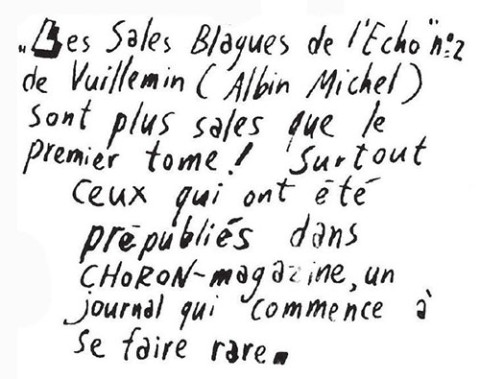 "Les Sales Blagues de l'Echo" n°2
de Vuillemin (Albin Michel)
sont plus sales que le
premier tome! Surtout
ceux qui ont été
prépubliés dans
CHORON-magazine, un
journal qui commence à
se faire rare.